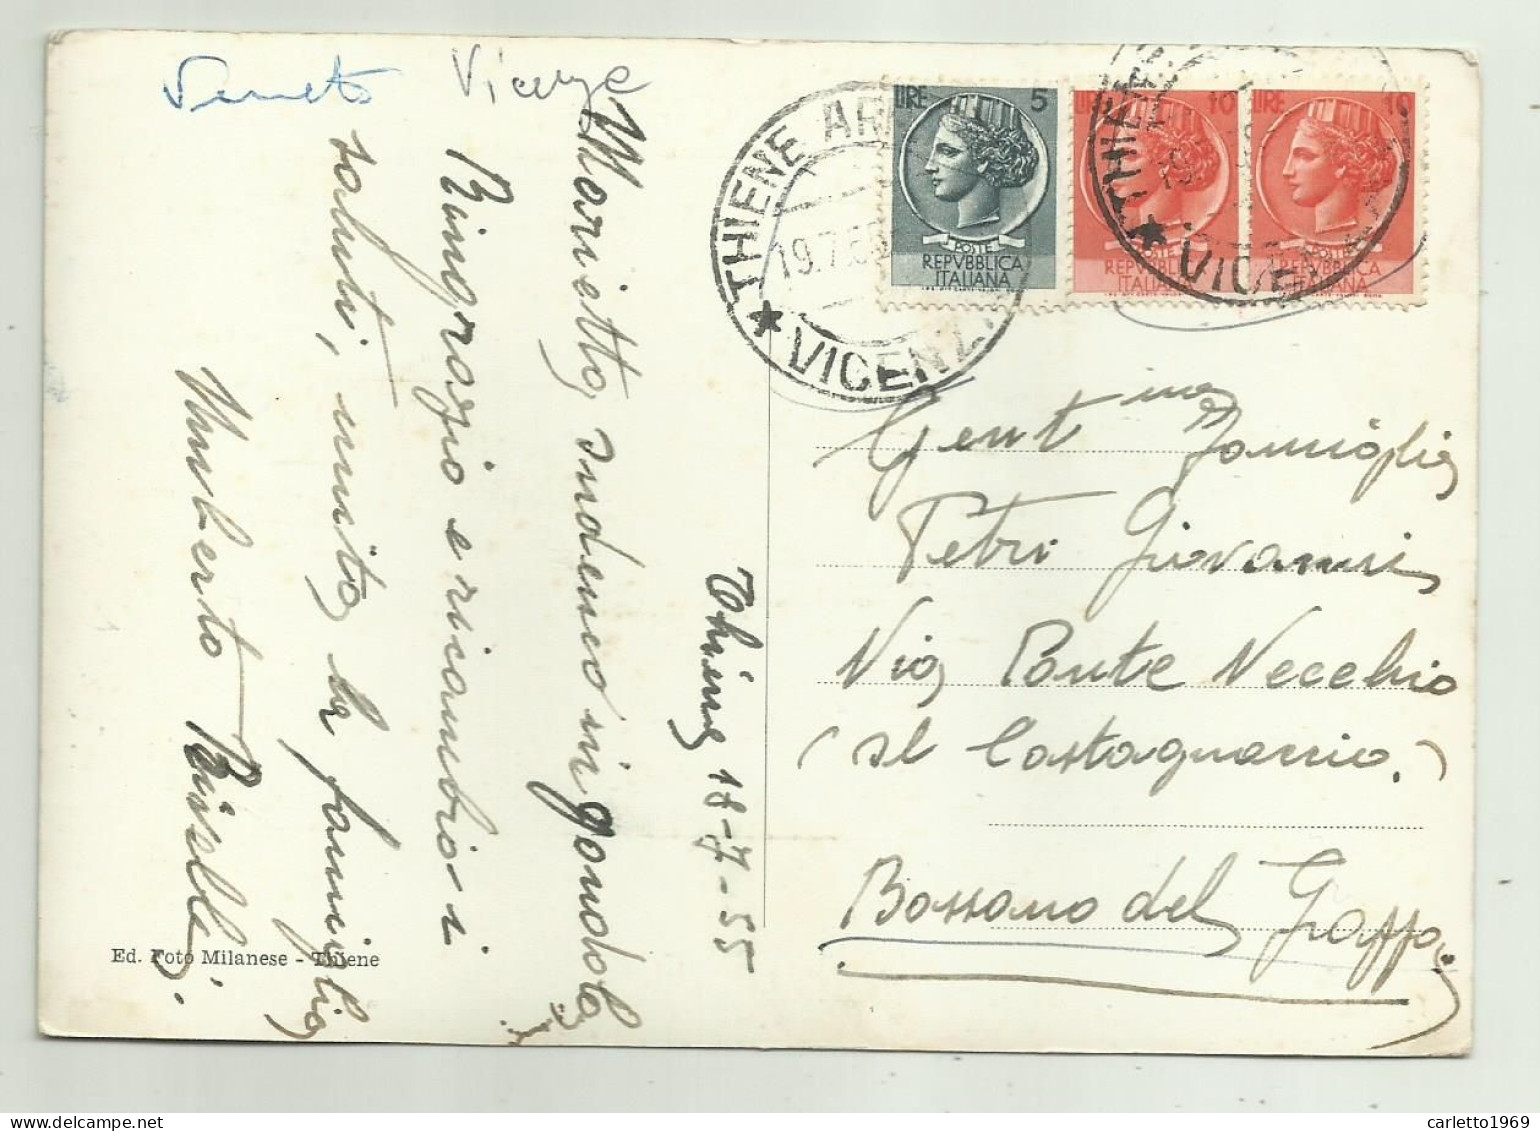 Veneto Vicenza
Thiene 18-7-55
Marietto andemo in gondola
Ringrazio e ricambio i
saluti, unito la famiglia
Umberto
Ed. Foto Milanese - Thiene
THIENE
19.7.55
VICENZA
LIRE 5
POSTE
REPVBBLICA
ITALIANA
LIRE 10
POSTE
REPVBBLICA
ITALIANA
LIRE 10
REPVBBLICA
ITALIANA
THIENE
VICENZA
Gent ma Famiglia
Petri Giovanni
Via Ponte Vecchio
(al Castagnaro.)
Bassano del Grappa
carletto1969